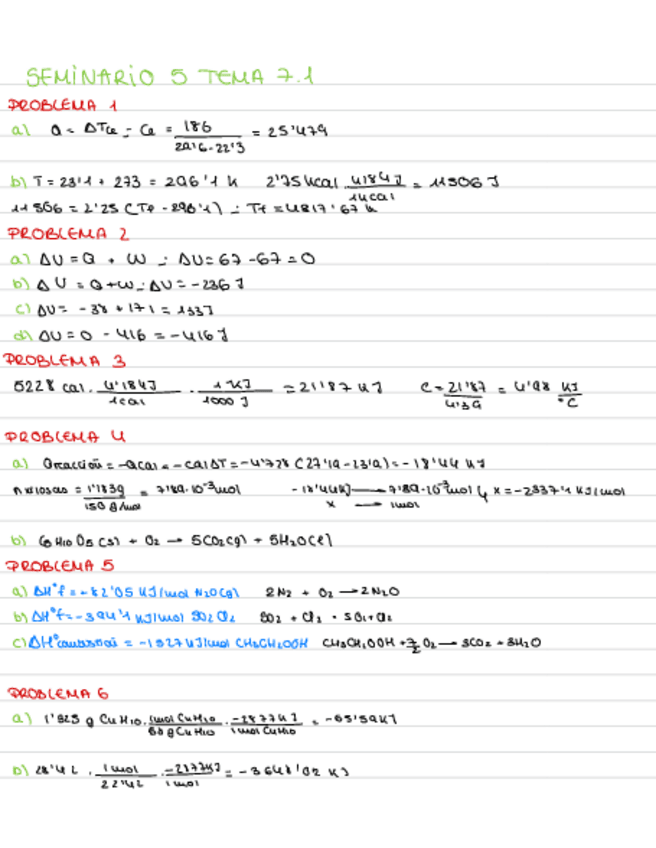 SEMINARIO 5 TEMA 7.1
PROBLEMA 1
a) Q = ΔTCe = Ce = 186 / 29'6-22'3 = 25'479
b) T = 23'1 + 273 = 296'1 K 2'75 kcal · 4184J / 1kcal = 11506 J
11506 = 2'25 (Tf - 296'1) = Tf = 4817'67 K
PROBLEMA 2
a) ΔU = Q + W = ΔU = 67 - 67 = 0
b) ΔU = Q + W = ΔU = -236 J
c) ΔU = -38 + 171 = 133J
d) ΔU = 0 - 416 = -416 J
PROBLEMA 3
5228 cal · 4'184J / 1cal · 1 KJ / 1000 J = 21'87 KJ C = 21'87 / 4'39 = 4'98 KJ / °C
PROBLEMA 4
a) Qreacción = -Qcal = -calΔT = -4'728 (27'19 - 23'29) = -18'44 KJ
n xilosas = 1'183g / 150 g/mol = 7'89·10⁻³ mol -18'44KJ → 7'89·10⁻³ mol x = -2337'1 KJ/mol
x → 1mol
b) C5H10O5 (s) + O2 → 5CO2(g) + 5H2O(l)
PROBLEMA 5
a) ΔH°f = +82'05 KJ/mol N2O(g) 2N2 + O2 → 2N2O
b) ΔH°f = -394'1 KJ/mol SO2Cl2 SO2 + Cl2
c) ΔH°combustión = -1527 KJ/mol CH3CH2OOH CH3CH2OOH + 7/2 O2 → 3CO2 + 3H2O
PROBLEMA 6
a) 1'325 g C4H10 · 1mol C4H10 / 58 g C4H10 · -2877KJ / 1mol C4H10 = -65'59KJ
b) 28'4 L · 1 mol / 22'4L · -2877KJ / 1mol = -3648'02 KJ